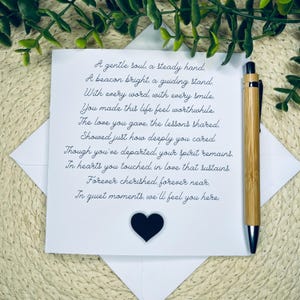 A gentle soul a steady hand.
A beacon bright a guiding stand
With every word, with every smile,
You made this life feel worthwhile.
The love you gave, the lessons shared,
Showed just how deeply you cared
Though you're departed, your spirit remains,
In hearts you touched, in love that sustains
Forever cherished, forever near,
In quiet moments, we'll feel you here.